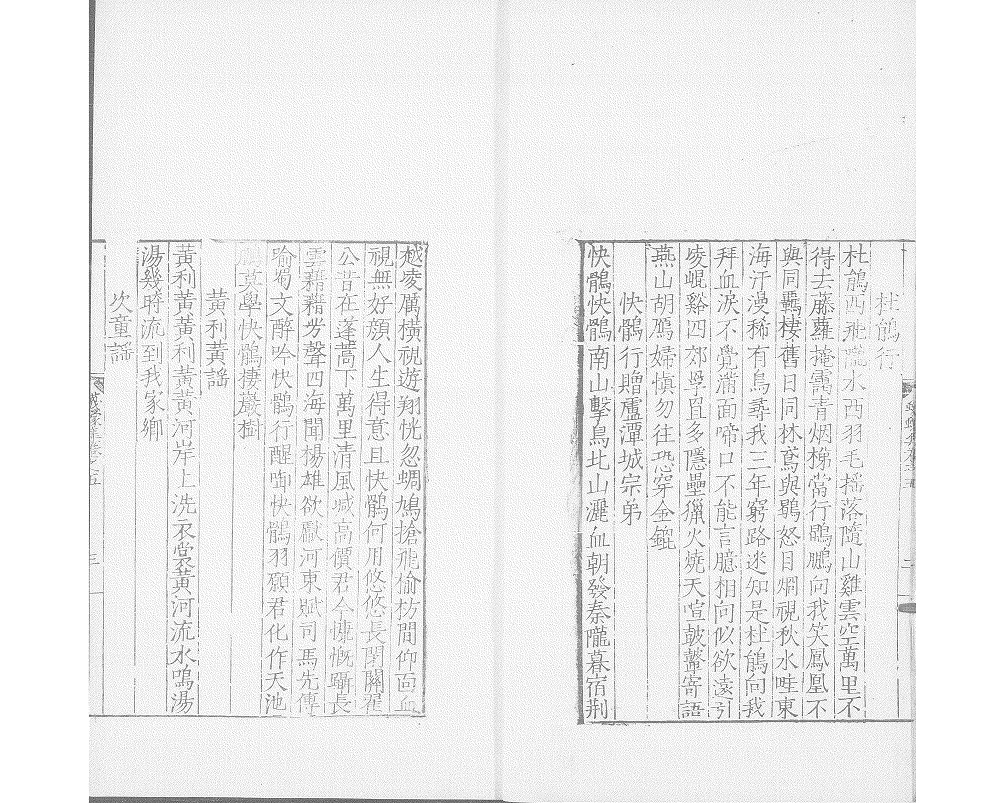 杜鵑行
杜鵑西飛隴水西羽毛搖落隨山雞雲空萬里不
得去藤蘿掩靄青烟梯常行鵾鵬向我笑鳳凰不
與同羈棲舊日同林鳶與鶚怒目烱視秋水哇東
海汗漫稀有鳥尋我三年窮路迷知是杜鵑向我
拜血淚不覺滿面啼口不能言臆相向似欲遠引
崚崐谿四郊學且多隱壘獵火燒天喧鼓鼙寄語
燕山胡鴈婦慎勿往恐穿金鎞
快鶻行贈盧潭城宗弟
快鶻快鶻南山擊鳥北山灑血朝發秦隴暮宿荆
越凌厲橫視遊翔恍忽蜩鳩搶飛偷枋間仰面血
視無好頰人生得意且快鶻何用悠悠長閉關翟
公昔在蓬蒿下萬里清風喊高價君今慷慨躡長
雲藉藉芳聲四海聞楊雄欲獻河東賦司馬先傳
喻蜀文醉吟快鶻行醒快鶻羽願君化作天池
莫學快鶻棲巖樹
黃利黃謠
黃利黃黃利黃黃河岸上洗衣裳黃河流水鳴湯
湯幾時流到我家鄉
次童謠
三